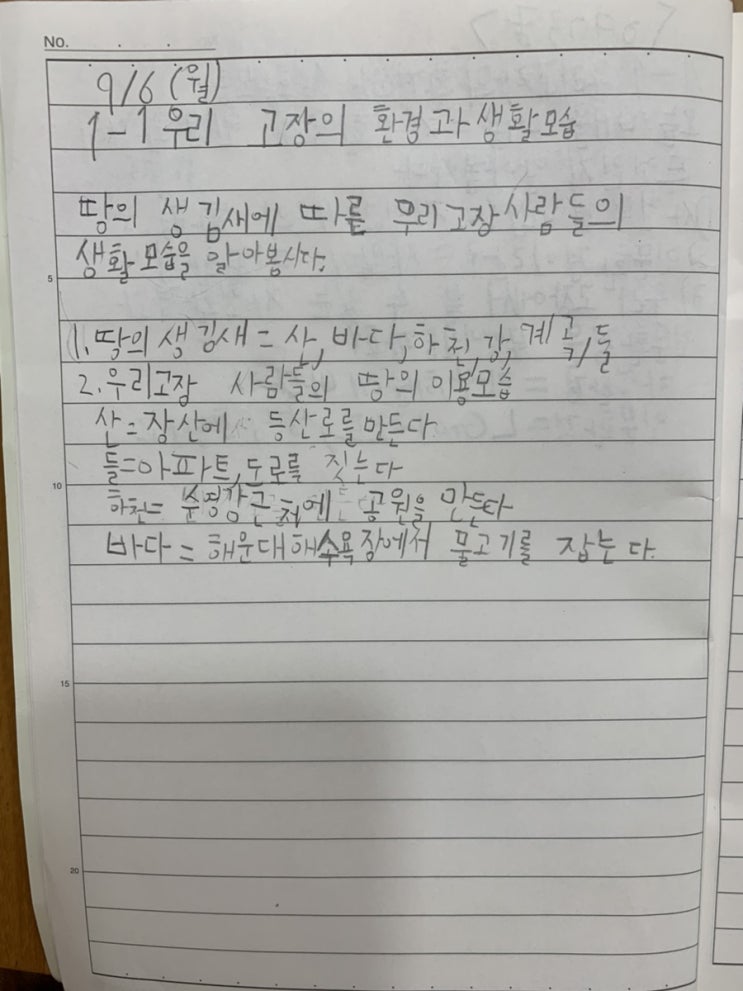 No.
9/6 (월)
1-1 우리 고장의 환경과 생활모습
땅의 생김새에 따른 우리 고장 사람들의
생활 모습을 알아봅시다.
5
1. 땅의 생김새 = 산, 바다, 하천, 강, 계곡, 들
2. 우리고장 사람들의 땅의 이용모습
산=장산에 등산로를 만든다
들=아파트, 도로를 짓는다
10
하천= 수영강근처에 공원을 만든다
바다 = 해운대해수욕장에서 물고기를 잡는다.
15
20